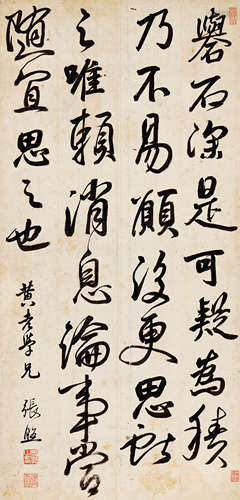 礜石深是可疑為積
乃不易願復更思獻
之唯賴消息論事當
隨宜思之也
黃老學兄 張照